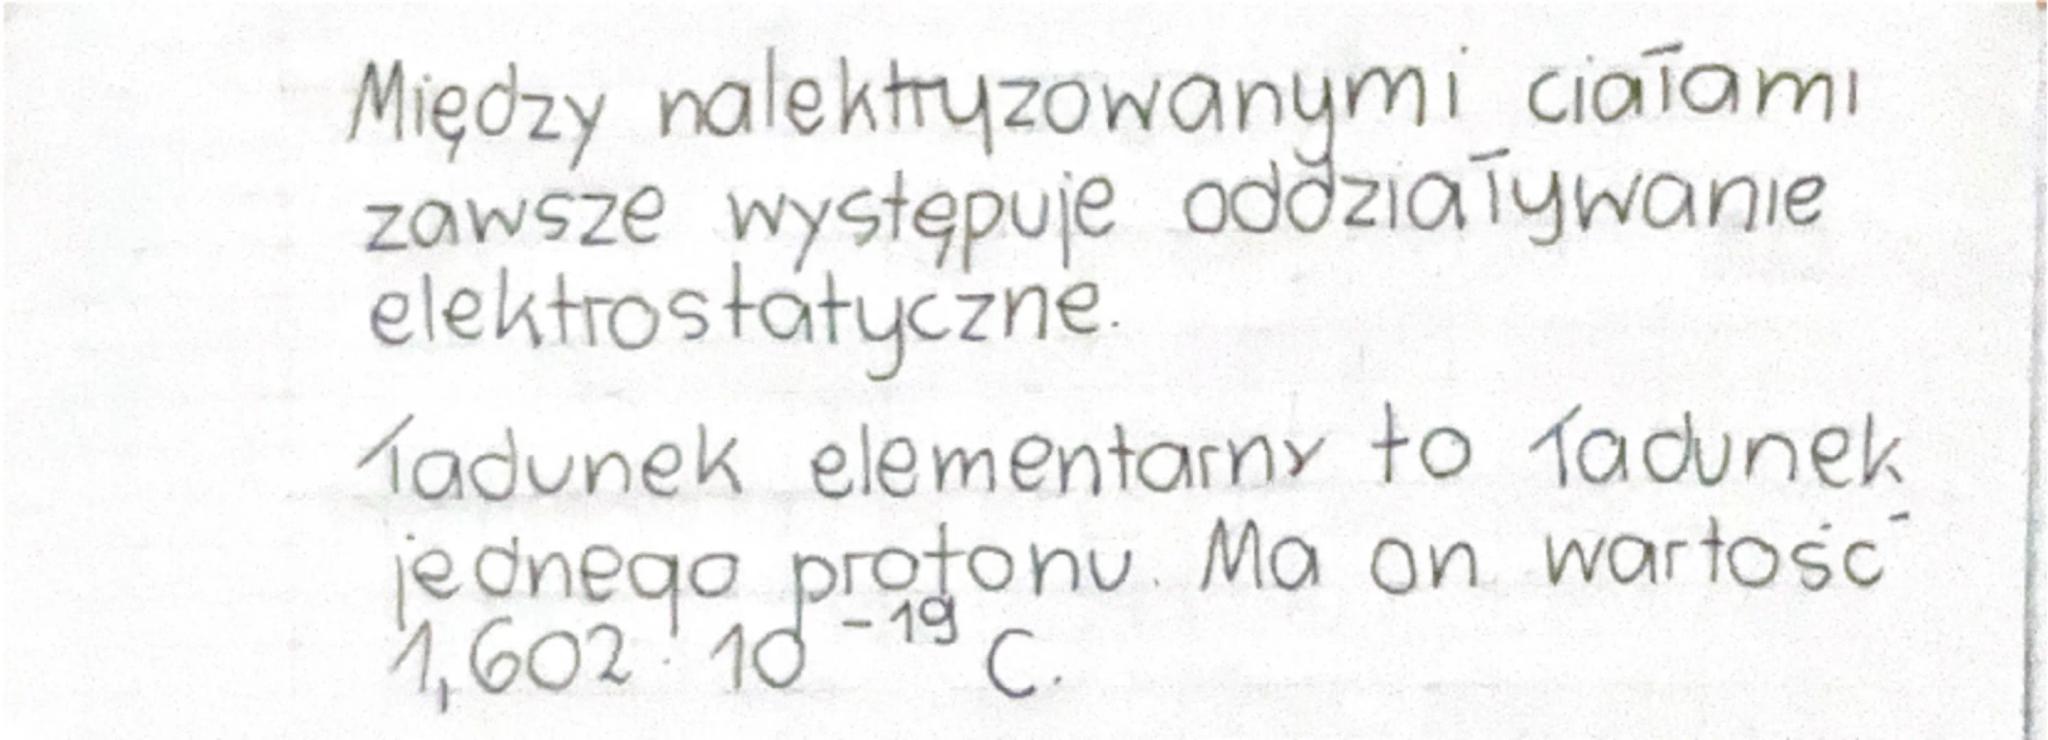 Między nalektryzowanymi ciałami
zawsze występuje oddziaływanie
elektrostatyczne.
Ładunek elementarny to ładunek
jednego protonu. Ma on wartość
1,602 · 10⁻¹⁹ C.